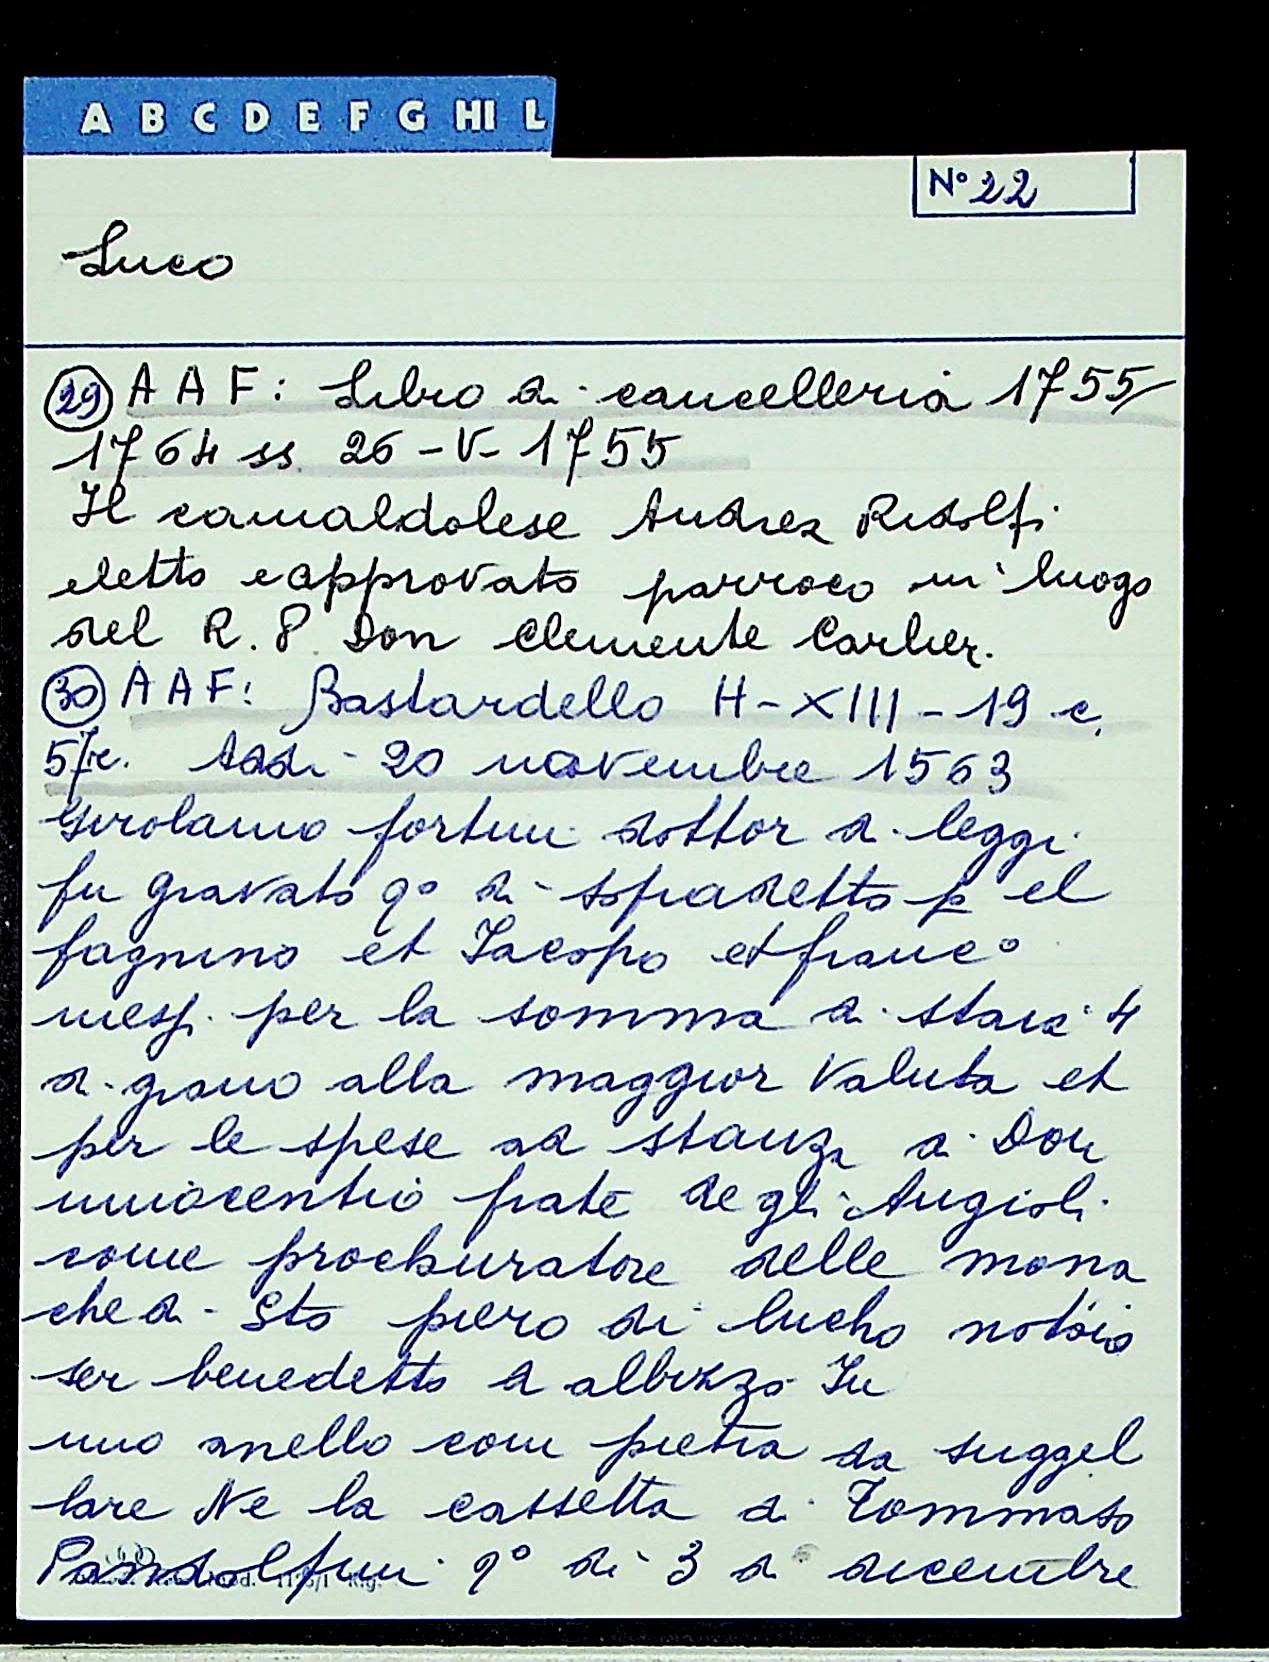 A B C D E F G HI L
N° 22
Luco
29 A A F: Libro di cancelleria 1755/
1764 ss. 26-V-1755
Il camaldolese Andrea Ridolfi
eletto e approvato parroco in luogo
del R. P. Don Clemente Carlier.
30 A A F: Bastardello H-XIII-19 c.
57r. Addì 20 novembre 1563
Girolamo fortini dottor di leggi
fu gravato q° di sopradetto p el
fagnino et Jacopo et franc°
mess. per la somma di staia 4
di grano alla maggior valuta et
per le spese ad stanza di Don
innocentio frate degli Angioli
come prochuratore delle mona
che di Sto piero di lucho notaio
ser benedetto d albizzo In
uno anello com pietra da suggel
lare Ne la cassetta di Tommaso
Pandolfini q° di 3 di dicembre